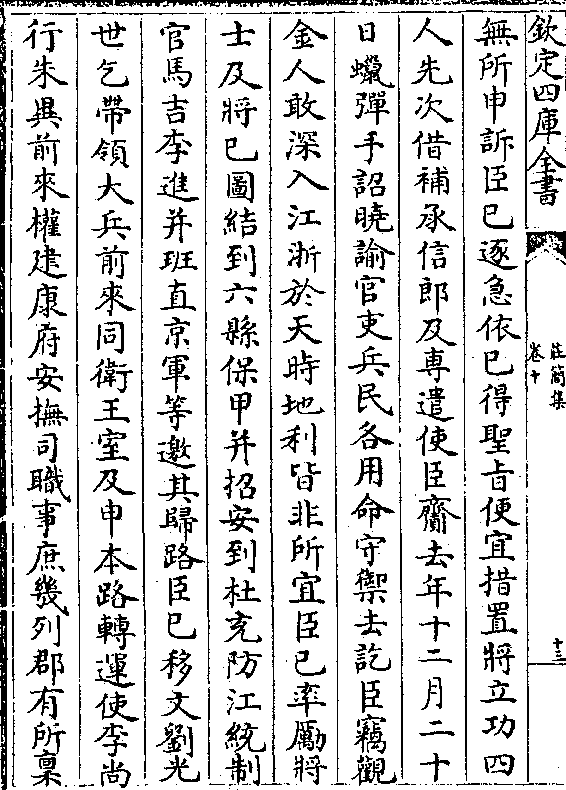 欽定四庫全書
莊簡集
卷十
十三
無所申訴臣已逐急依已得聖旨便宜措置將立功四
人先次借補承信郎及專遣使臣齎去年十二月二十
日蠟彈手詔曉諭官吏兵民各用命守禦去訖臣竊觀
金人敢深入江浙於天時地利皆非所宜臣已率勵將
士及將已圖結到六縣保甲并招安到杜充防江統制
官馬吉李進并班直京軍等邀其歸路臣已移文劉光
世乞帶領大兵前來同衛王室及申本路轉運使李尚
行朱異前來權建康府安撫司職事庶幾列郡有所稟